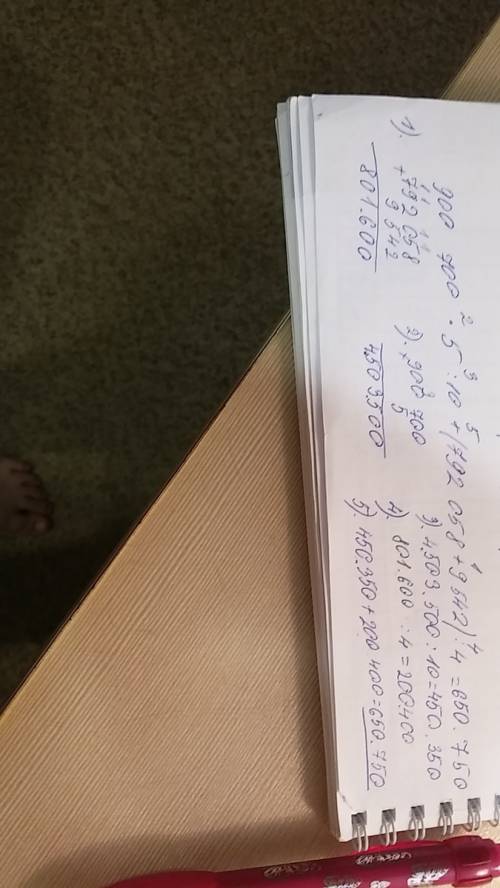 900 700 · 5 : 10 + (792 058 + 9 542) : 4 = 650.750
2 3 5 1 4
1). +792 058
9 542
801.600
2). ×900 700
5
4503.500
3). 4.503.500 : 10 = 450.350
4). 801.600 : 4 = 200.400
5). 450.350 + 200 400 = 650.750